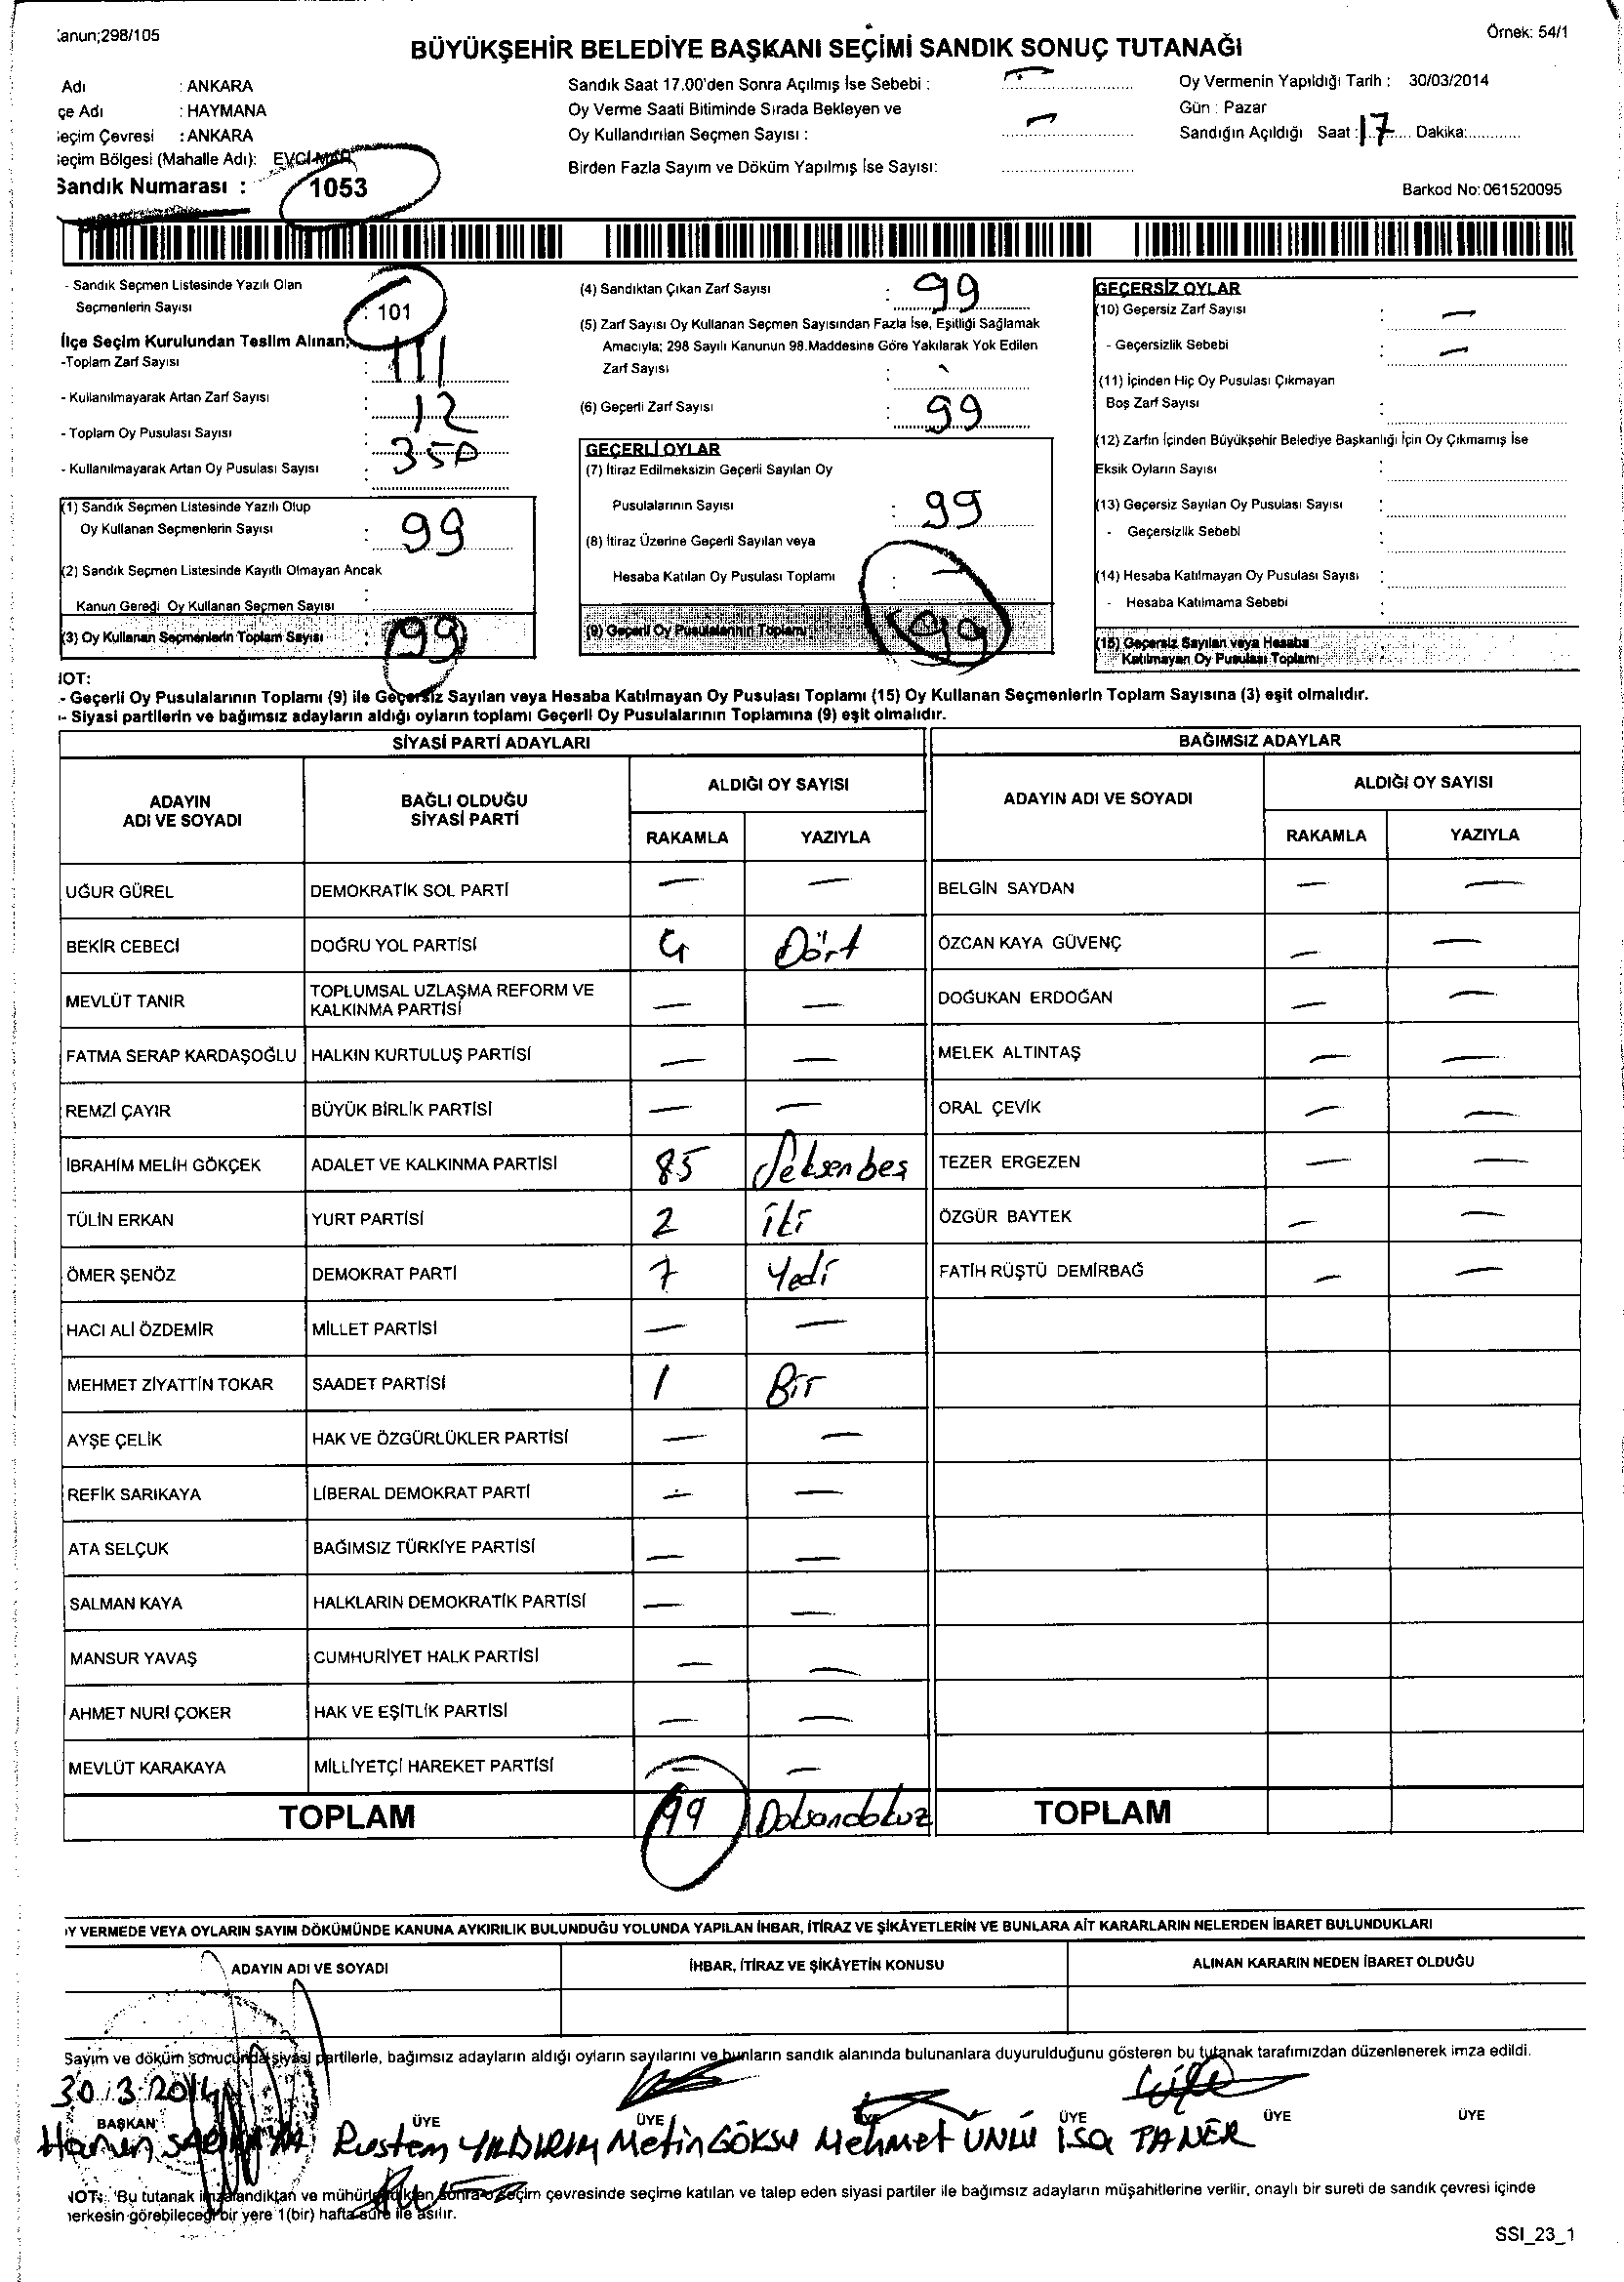 anun;298/105
Örnek: 54/1
BÜYÜKŞEHİR BELEDİYE BAŞKANI SEÇİMİ SANDIK SONUÇ TUTANAĞI
Adı : ANKARA
çe Adı : HAYMANA
eçim Çevresi : ANKARA
eçim Bölgesi (Mahalle Adı):
Sandık Numarası : 1053
Sandık Saat 17.00'den Sonra Açılmış İse Sebebi : —
Oy Verme Saati Bitiminde Sırada Bekleyen ve
Oy Kullandırılan Seçmen Sayısı : —
Birden Fazla Sayım ve Döküm Yapılmış İse Sayısı:
Oy Vermenin Yapıldığı Tarih : 30/03/2014
Gün : Pazar
Sandığın Açıldığı Saat : 17 Dakika:
Barkod No: 061520095
- Sandık Seçmen Listesinde Yazılı Olan
Seçmenlerin Sayısı : 101
İlçe Seçim Kurulundan Teslim Alınan;
-Toplam Zarf Sayısı : 111
- Kullanılmayarak Artan Zarf Sayısı : 12
- Toplam Oy Pusulası Sayısı : 350
- Kullanılmayarak Artan Oy Pusulası Sayısı :
(1) Sandık Seçmen Listesinde Yazılı Olup
Oy Kullanan Seçmenlerin Sayısı : 99
(2) Sandık Seçmen Listesinde Kayıtlı Olmayan Ancak
Kanun Gereği Oy Kullanan Seçmen Sayısı :
(3) Oy Kullanan Seçmenlerin Toplam Sayısı : 99
(4) Sandıktan Çıkan Zarf Sayısı : 99
(5) Zarf Sayısı Oy Kullanan Seçmen Sayısından Fazla İse, Eşitliği Sağlamak
Amacıyla; 298 Sayılı Kanunun 98.Maddesine Göre Yakılarak Yok Edilen
Zarf Sayısı :
(6) Geçerli Zarf Sayısı : 99
GEÇERLİ OYLAR
(7) İtiraz Edilmeksizin Geçerli Sayılan Oy
Pusulalarının Sayısı : 99
(8) İtiraz Üzerine Geçerli Sayılan veya
Hesaba Katılan Oy Pusulası Toplamı : —
(9) Geçerli Oy Pusulalarının Toplamı 99
GEÇERSİZ OYLAR
(10) Geçersiz Zarf Sayısı : —
- Geçersizlik Sebebi : —
(11) İçinden Hiç Oy Pusulası Çıkmayan
Boş Zarf Sayısı :
(12) Zarfın İçinden Büyükşehir Belediye Başkanlığı İçin Oy Çıkmamış İse
Eksik Oyların Sayısı :
(13) Geçersiz Sayılan Oy Pusulası Sayısı :
- Geçersizlik Sebebi :
(14) Hesaba Katılmayan Oy Pusulası Sayısı :
- Hesaba Katılmama Sebebi :
(15) Geçersiz Sayılan veya Hesaba
Katılmayan Oy Pusulası Toplamı :
NOT:
- Geçerli Oy Pusulalarının Toplamı (9) ile Geçersiz Sayılan veya Hesaba Katılmayan Oy Pusulası Toplamı (15) Oy Kullanan Seçmenlerin Toplam Sayısına (3) eşit olmalıdır.
- Siyasi partilerin ve bağımsız adayların aldığı oyların toplamı Geçerli Oy Pusulalarının Toplamına (9) eşit olmalıdır.
SİYASİ PARTİ ADAYLARI BAĞIMSIZ ADAYLAR
ADAYIN ADI VE SOYADI BAĞLI OLDUĞU SİYASİ PARTİ ALDIĞI OY SAYISI ADAYIN ADI VE SOYADI ALDIĞI OY SAYISI
RAKAMLA YAZIYLA RAKAMLA YAZIYLA
UĞUR GÜREL DEMOKRATİK SOL PARTİ — — BELGİN SAYDAN — —
BEKİR CEBECİ DOĞRU YOL PARTİSİ 4 Dört ÖZCAN KAYA GÜVENÇ — —
MEVLÜT TANIR TOPLUMSAL UZLAŞMA REFORM VE KALKINMA PARTİSİ — — DOĞUKAN ERDOĞAN — —
FATMA SERAP KARDAŞOĞLU HALKIN KURTULUŞ PARTİSİ — — MELEK ALTINTAŞ — —
REMZİ ÇAYIR BÜYÜK BİRLİK PARTİSİ — — ORAL ÇEVİK — —
İBRAHİM MELİH GÖKÇEK ADALET VE KALKINMA PARTİSİ 85 Seksenbeş TEZER ERGEZEN — —
TÜLİN ERKAN YURT PARTİSİ 2 iki ÖZGÜR BAYTEK — —
ÖMER ŞENÖZ DEMOKRAT PARTİ 7 Yedi FATİH RÜŞTÜ DEMİRBAĞ — —
HACI ALİ ÖZDEMİR MİLLET PARTİSİ — —
MEHMET ZİYATTİN TOKAR SAADET PARTİSİ 1 Bir
AYŞE ÇELİK HAK VE ÖZGÜRLÜKLER PARTİSİ — —
REFİK SARIKAYA LİBERAL DEMOKRAT PARTİ — —
ATA SELÇUK BAĞIMSIZ TÜRKİYE PARTİSİ — —
SALMAN KAYA HALKLARIN DEMOKRATİK PARTİSİ — —
MANSUR YAVAŞ CUMHURİYET HALK PARTİSİ — —
AHMET NURİ ÇOKER HAK VE EŞİTLİK PARTİSİ — —
MEVLÜT KARAKAYA MİLLİYETÇİ HAREKET PARTİSİ — —
TOPLAM 99 Doksandokuz TOPLAM
Y VERMEDE VEYA OYLARIN SAYIM DÖKÜMÜNDE KANUNA AYKIRILIK BULUNDUĞU YOLUNDA YAPILAN İHBAR, İTİRAZ VE ŞİKÂYETLERİN VE BUNLARA AİT KARARLARIN NELERDEN İBARET BULUNDUKLARI
ADAYIN ADI VE SOYADI İHBAR, İTİRAZ VE ŞİKÂYETİN KONUSU ALINAN KARARIN NEDEN İBARET OLDUĞU
Sayım ve döküm sonucunda siyasi partilerle, bağımsız adayların aldığı oyların sayılarını ve bunların sandık alanında bulunanlara duyurulduğunu gösteren bu tutanak tarafımızdan düzenlenerek imza edildi.
30.3.2014
BAŞKAN ÜYE ÜYE ÜYE ÜYE ÜYE ÜYE
Rustem YILDIRIM Metin GÖKSU Mehmet ÜNLÜ İsa TANER
NOT: Bu tutanak imzalandıktan ve mühürlendikten sonra o seçim çevresinde seçime katılan ve talep eden siyasi partiler ile bağımsız adayların müşahitlerine verilir, onaylı bir sureti de sandık çevresi içinde
herkesin görebileceği bir yere 1 (bir) hafta süre ile asılır.
SSI_23_1